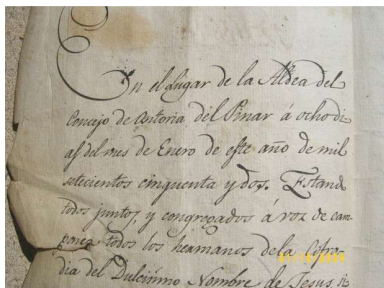 En el Lugar de la Aldea del
Concejo de Ontoria del Pinar á ocho di
as del mes de Enero de este año de mil
setecientos cinquenta y dos. Estand
todos juntos, y congregados á voz de cam
pana todos los hermanos de la Cofra
dia del Dulcissimo Nombre de Jesus